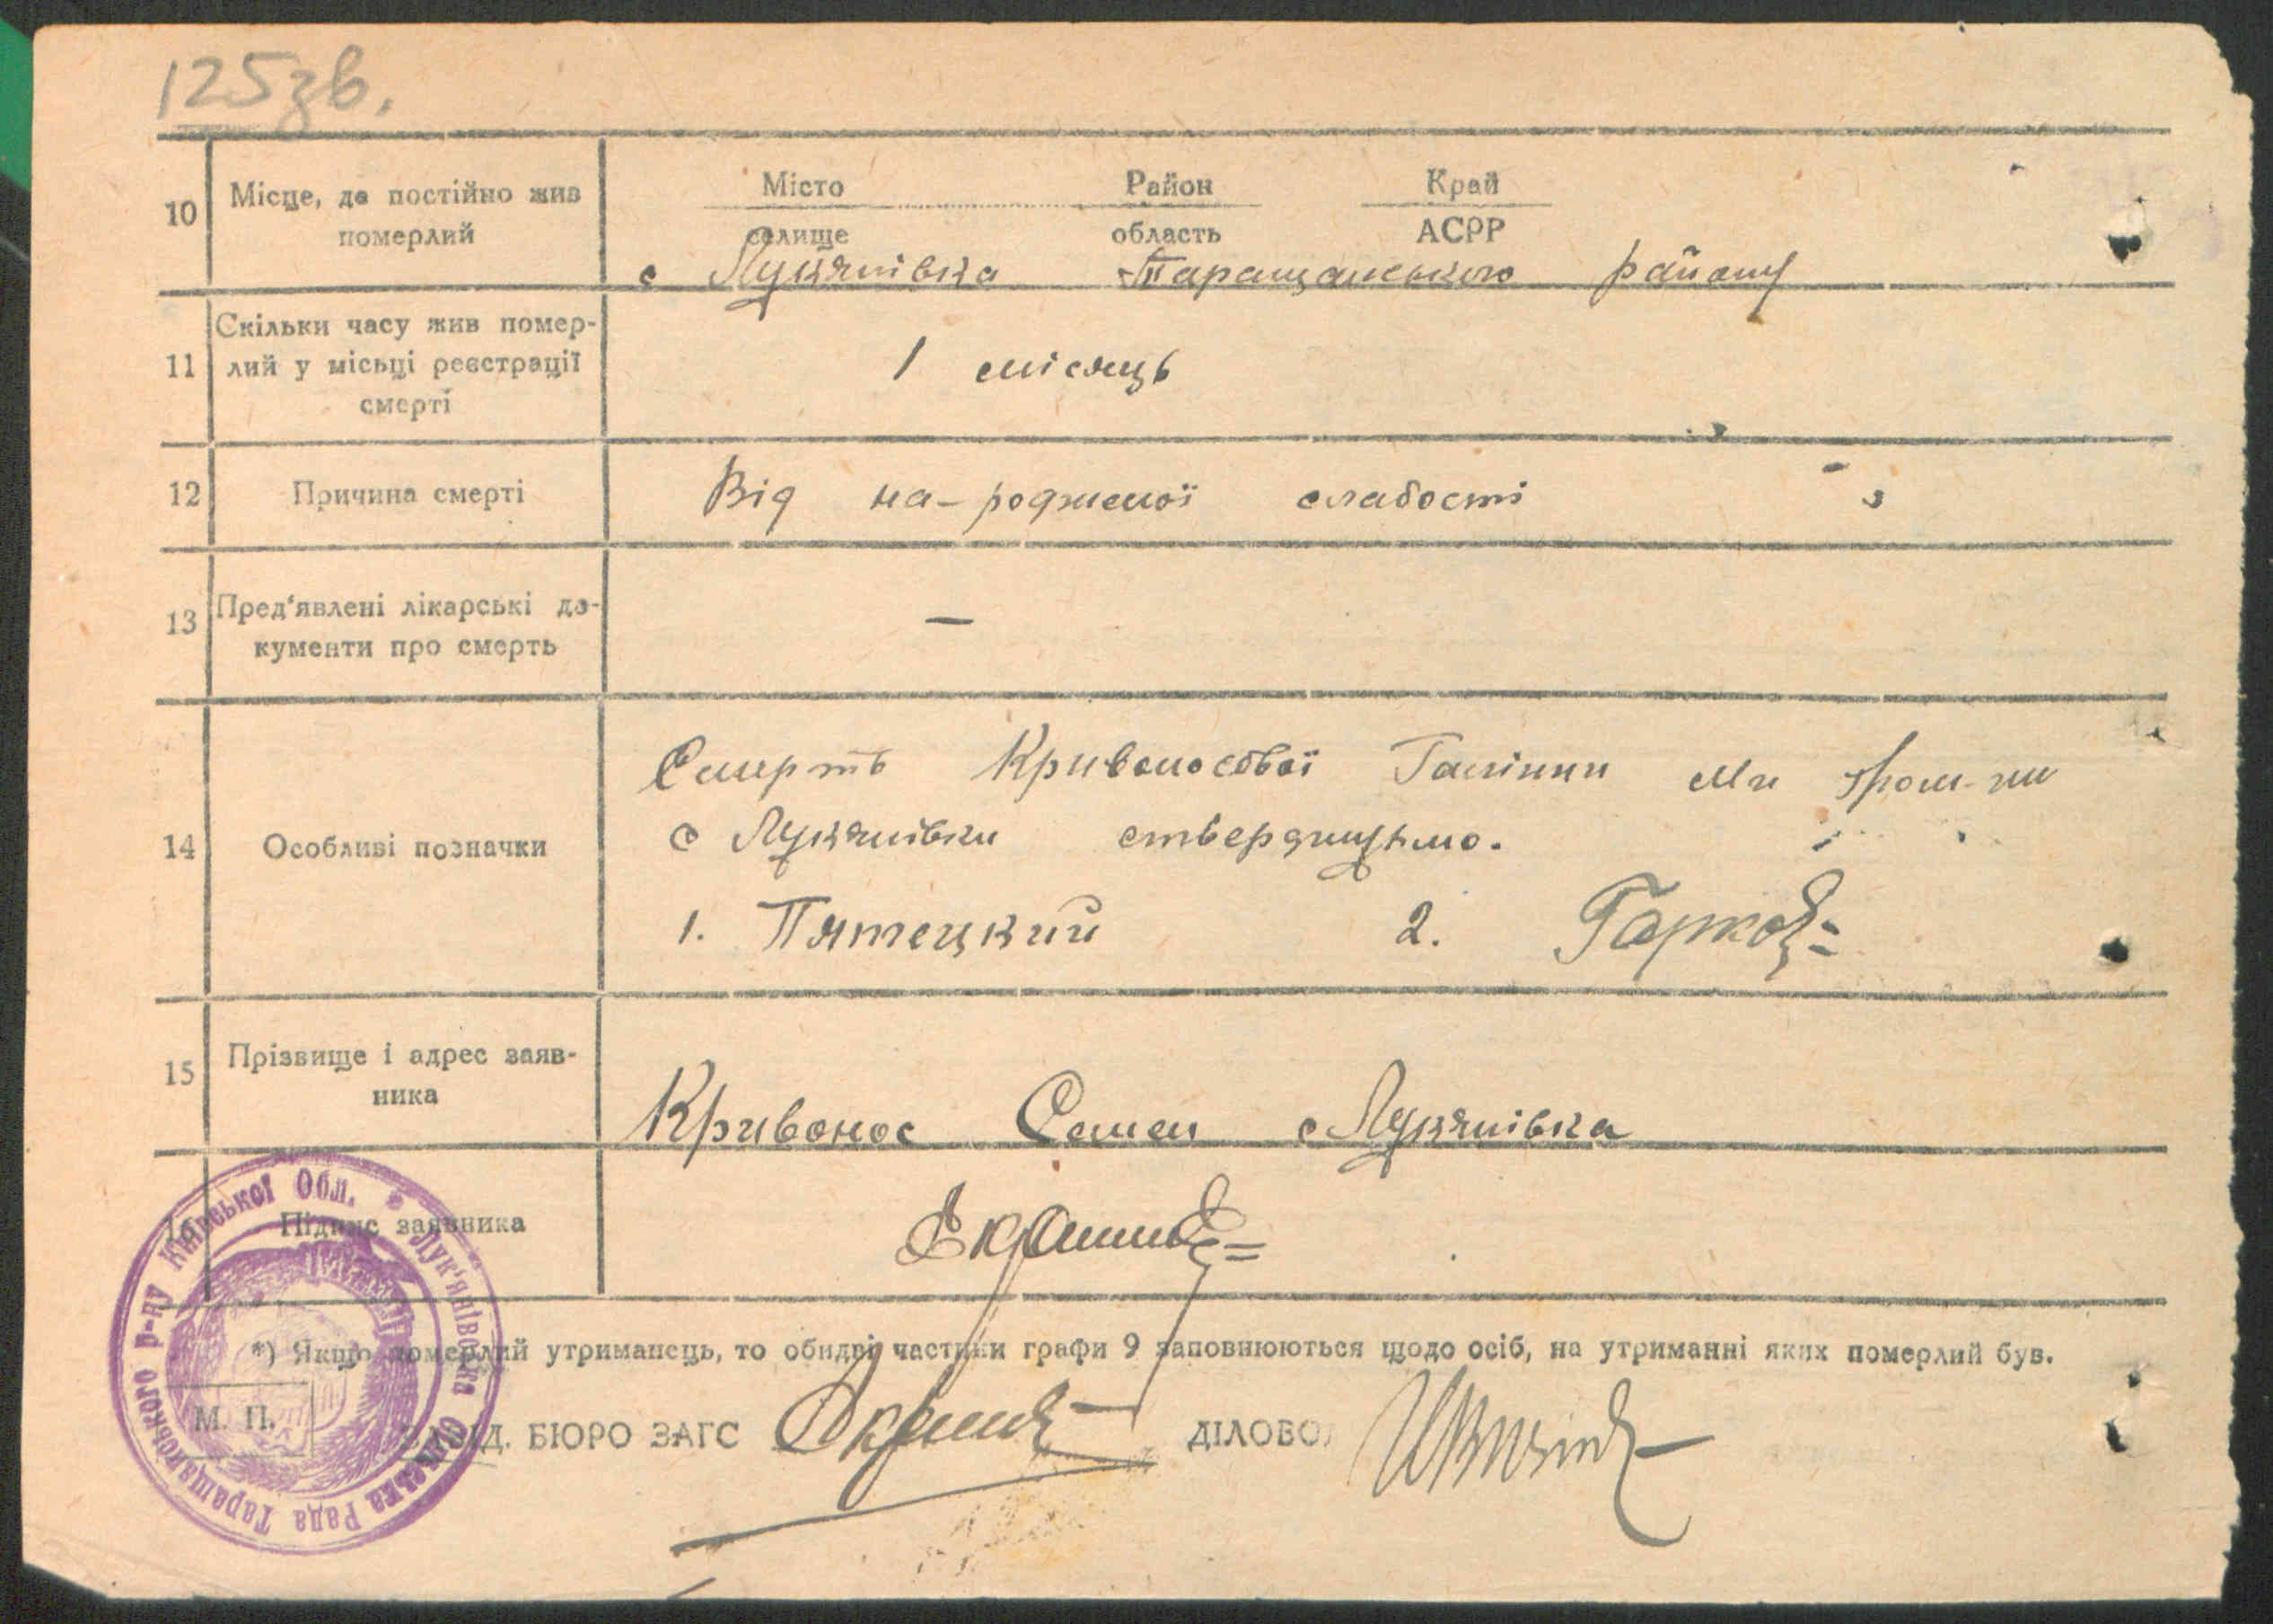 125зв.
10 Місце, де постійно жив померлий
Місто Район Край
селище область АСРР
с Лукянівка Таращанського району
11 Скільки часу жив помер-
лий у місьці реєстрації
смерті
1 місяць
12 Причина смерті
Від на-родженої слабості
13 Пред'явлені лікарські до-
кументи про смерть
—
14 Особливі позначки
Смерть Кривоносової Галінни ми гром-ни
с Лукянівки стверджуємо.
1. Пятецкий 2.
15 Прізвище і адрес заяв-
ника
Кривонос Семен с Лукянівка
16 Підпис заявника
*) Якщо померлий утриманець, то обидві частини графи 9 заповнюються щодо осіб, на утриманні яких померлий був.
М. П.
ЗАВІД. БЮРО ЗАГС ДІЛОВОД
Лук'янівська Сільська Рада Таращанського р-ну Київської Обл.